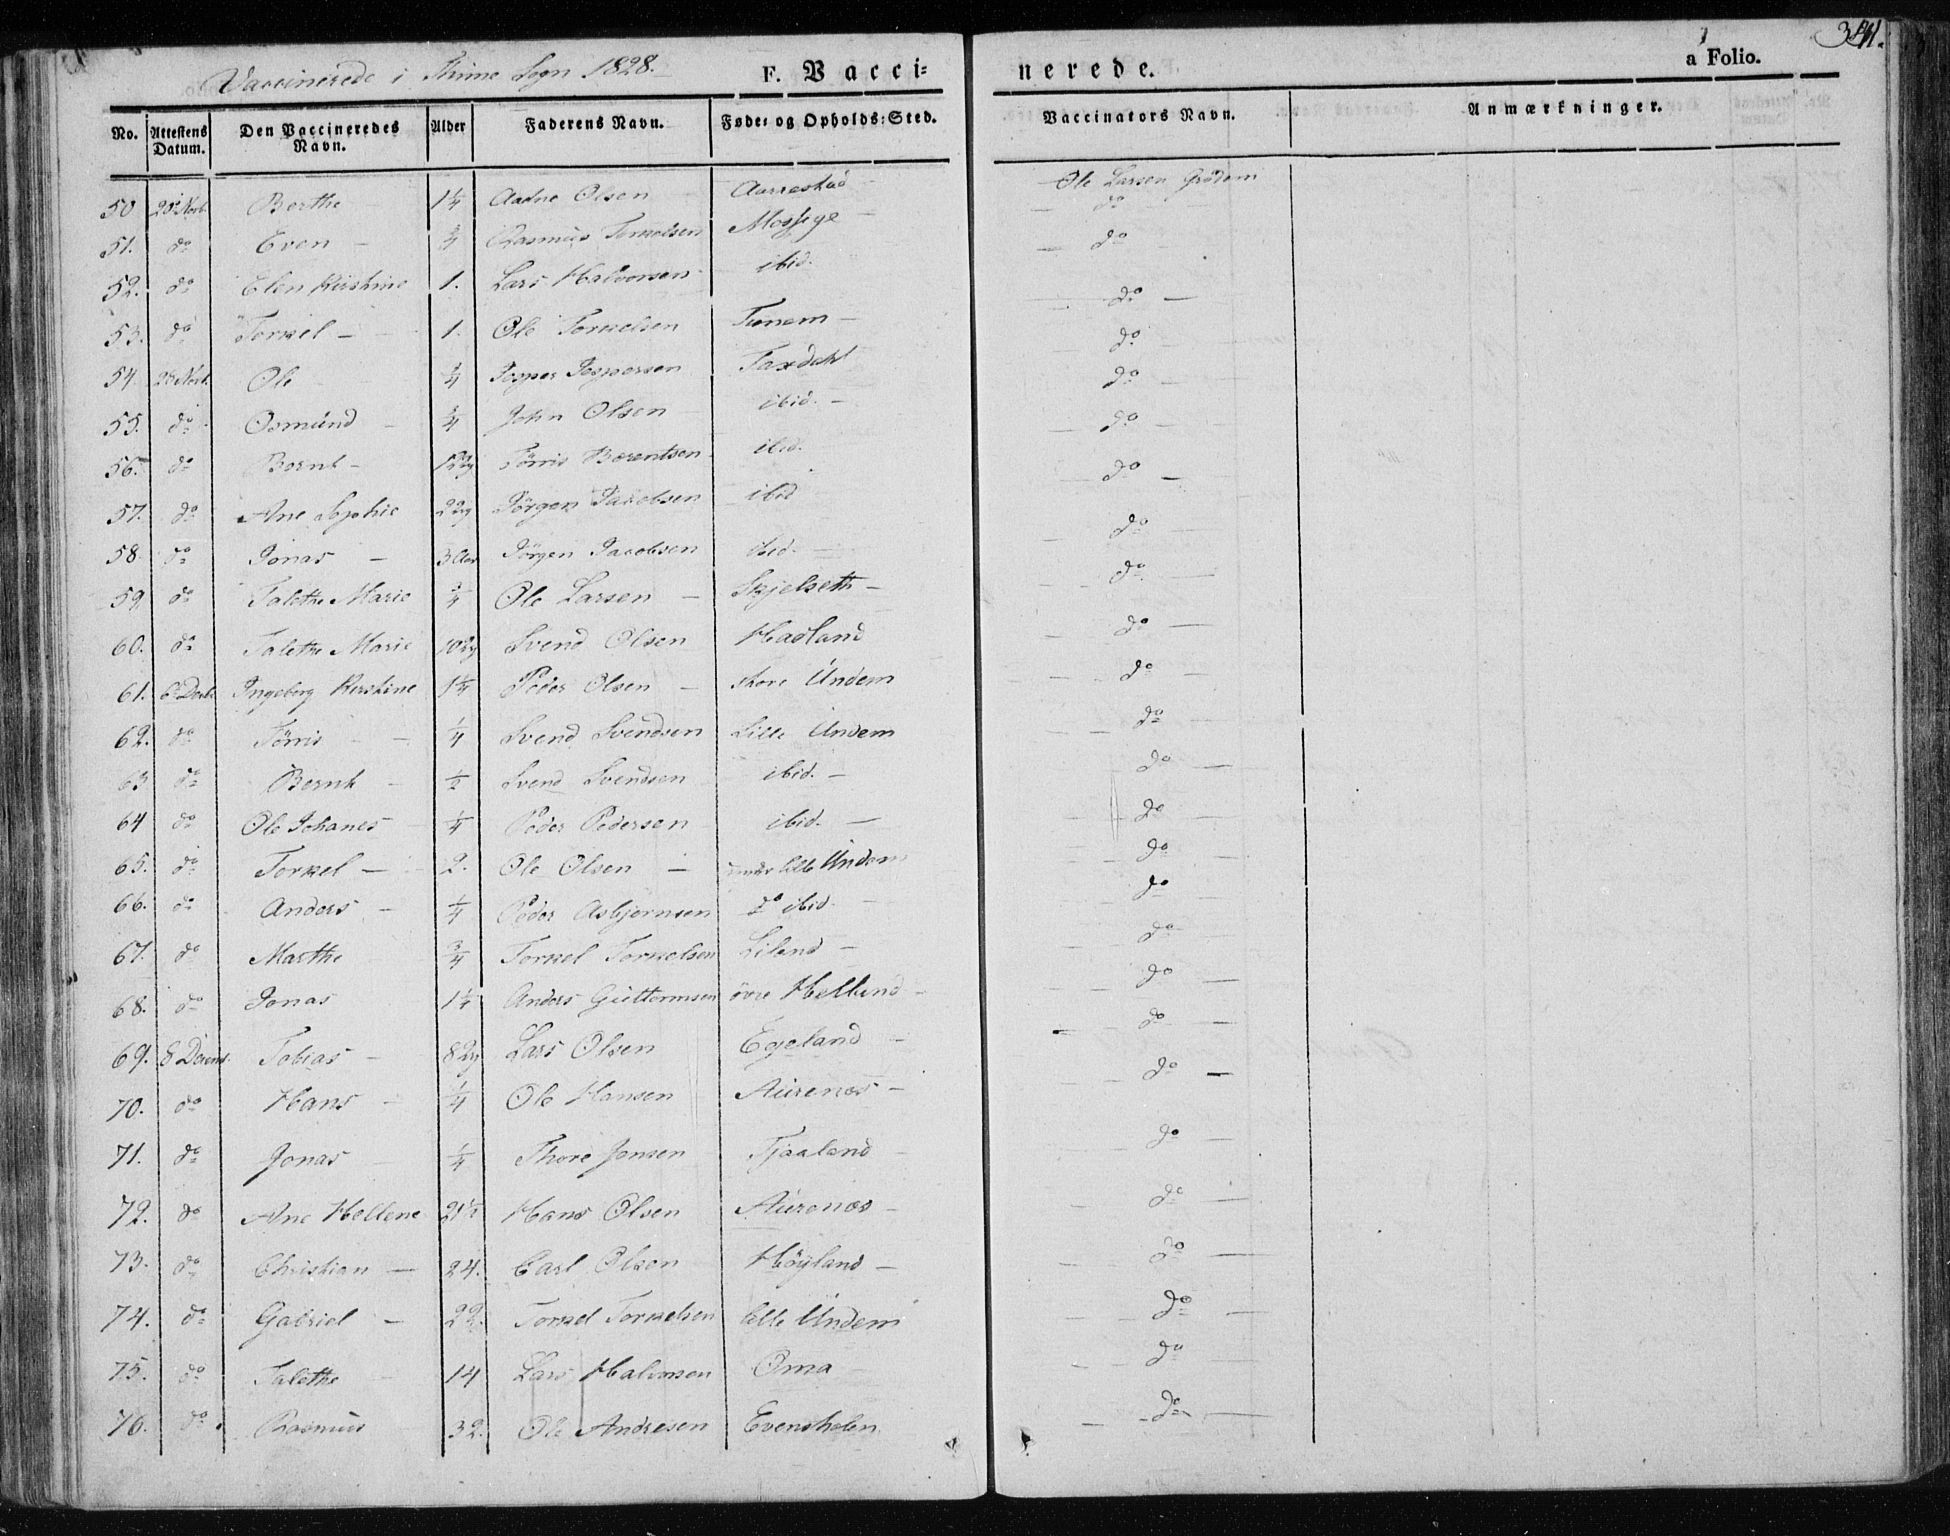 Vaccinerede i Thime Sogn 1828.
F. Vacci=
nerede.
a Folio.
341.
No. Attestens Datum. Den Vaccineredes Navn. Alder Faderens Navn. Føde= og Opholds=Sted. Vaccinators Navn. Anmærkninger.
50 Berthe 1¼ Aadne Olsen Aarrestad Ole Larsen Grødem
51. do Even – ¾ Rasmus Torkelsen Mossige – do
52. do Elen Kirstine 1. Lars Halvorsen ibid. do
53. do Torkel – 1. Ole Torkelsen Tunem – do
54. Ole ¾ Jesper Jespersen Taxdahl do
55. do Osmund – ¾ John Olsen ibid. – do
56. do Bernt – Tørris Berentsen ibid. do
57. do Ane Sophie Jörgen Jacobsen ibid do
58. do Jonas – 3 Aar Jörgen Jacobsen ibid. do
59 do Talethe Marie ¾ Ole Larsen – Skjelseth – do
60. do Talethe Marie Svend Olsen Haaland do
61. Ingeborg Kirstine 1¼ Peder Olsen – store Undem do
62. do Tørris – ¼ Svend Svendsen Lille Undem do
63 do Bernt – ½ Svend Svendsen ibid. – do
64 do Ole Johanes ¼ Peder Pedersen ibid. – do
65. do Torkel – 2. Ole Olsen – under lille Undem do
66. do Anders – ¼ Peder Asbjørnsen do ibid. do
67. do Marthe ¾ Torkel Torkelsen Liland – do
68. do Jonas 1¼ Anders Guttormsen övre Helland – do
69. 8 Decemb. Tobias – Lars Olsen Egeland – do
70. do Hans – ¼ Ole Hansen Aurenes – do
71. do Jonas ¼ Thore Jonsen Tjaaland do
72. do Ane Hellene 21½ Hans Olsen Aurenes – do
73. do Christian – 24. Carl Olsen Höyland – do
74. do Gabriel – 22. Torkel Torkelsen lille Undem do
75. do Talethe 14 Lars Halvorsen Oma do
76. do Rasmus 32. Ole Andresen Evensholen do